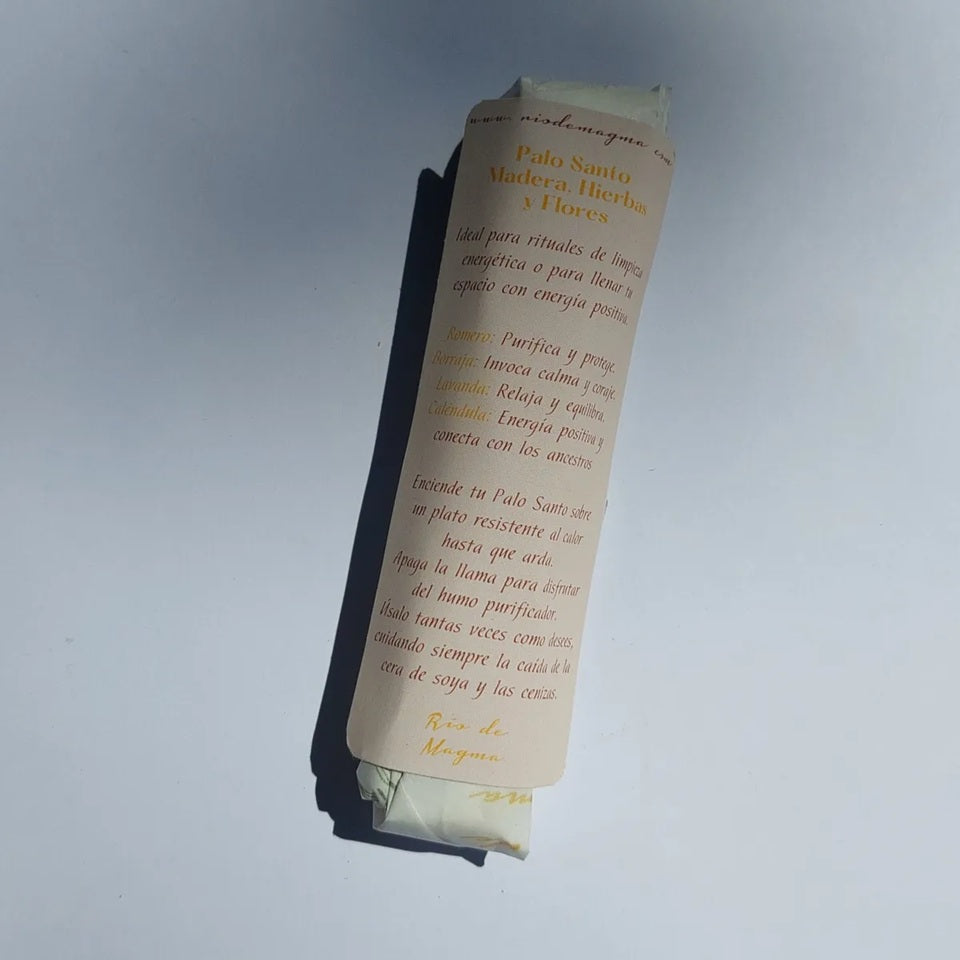 www.riosdemagma.com
Palo Santo
Madera, Hierbas
y Flores
Ideal para rituales de limpieza
energética o para llenar tu
espacio con energía positiva.
Romero: Purifica y protege.
Borraja: Invoca calma y coraje.
Lavanda: Relaja y equilibra.
Caléndula: Energía positiva y
conecta con los ancestros
Enciende tu Palo Santo sobre
un plato resistente al calor
hasta que arda.
Apaga la llama para disfrutar
del humo purificador.
Úsalo tantas veces como desees,
cuidando siempre la caída de la
cera de soya y las cenizas.
Ríos de
Magma